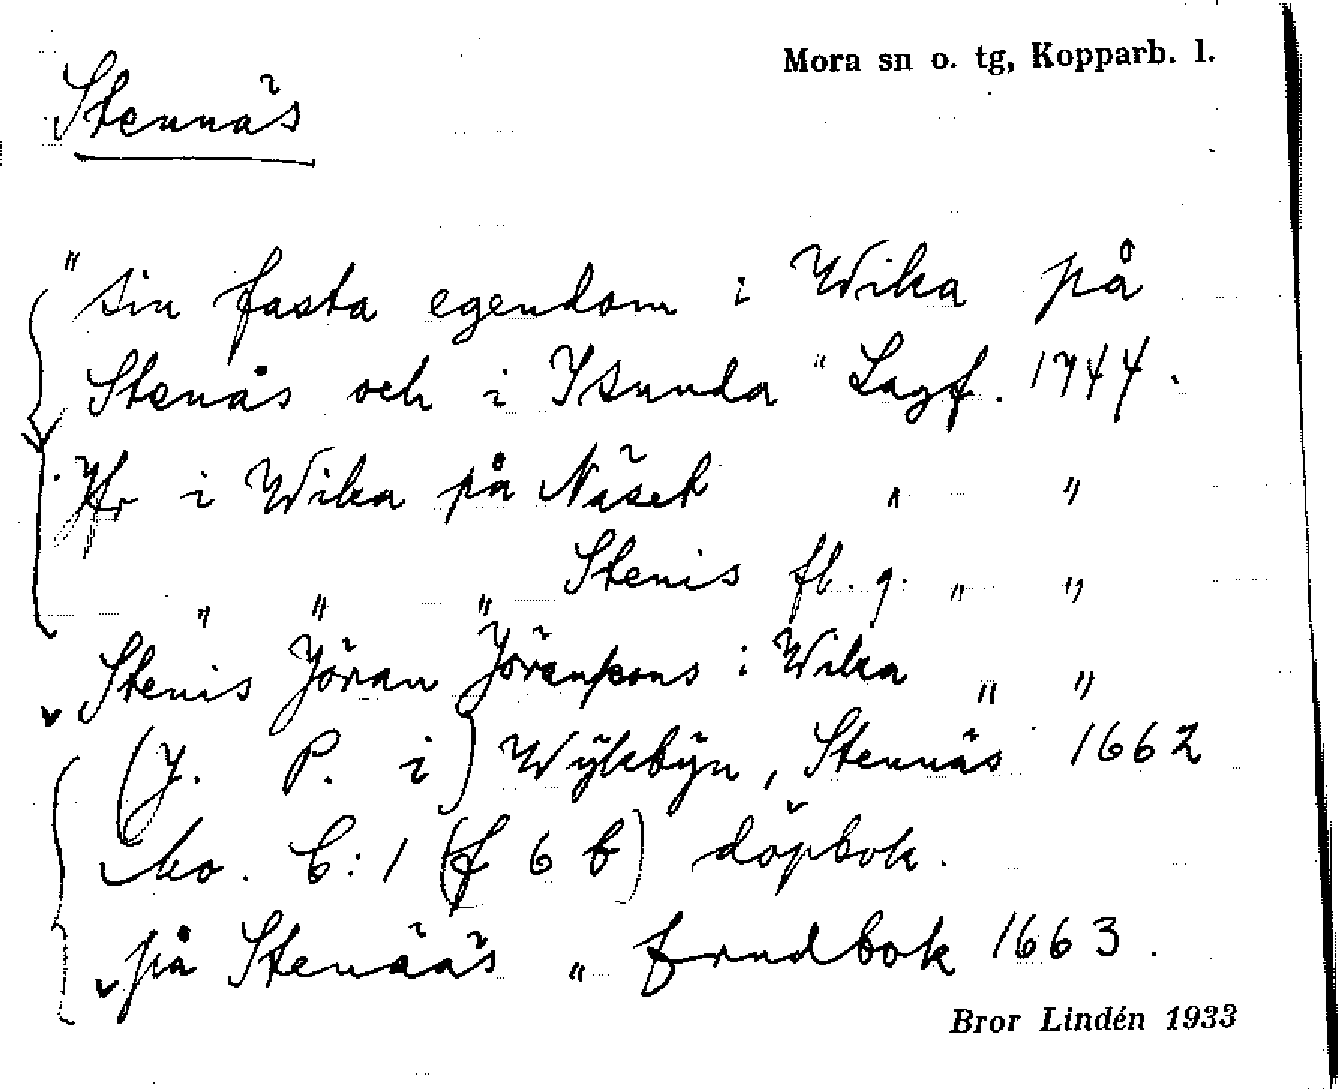 Mora sn o. tg, Kopparb. l.
Stennäs
"sin fasta egendom i Wika på
Stenäs och i Isunda" Lagf. 1744.
Jfr i Wika på Näset " "
" " " Stenis fl. g. " "
Stenis Jöran Jöranssons i Wika " "
(J. P. i) Wÿkbÿn, Stennäs 1662
ko. C:1 (f 6 b) döpbok.
på Stenääs " brudbok 1663.
Bror Lindén 1933